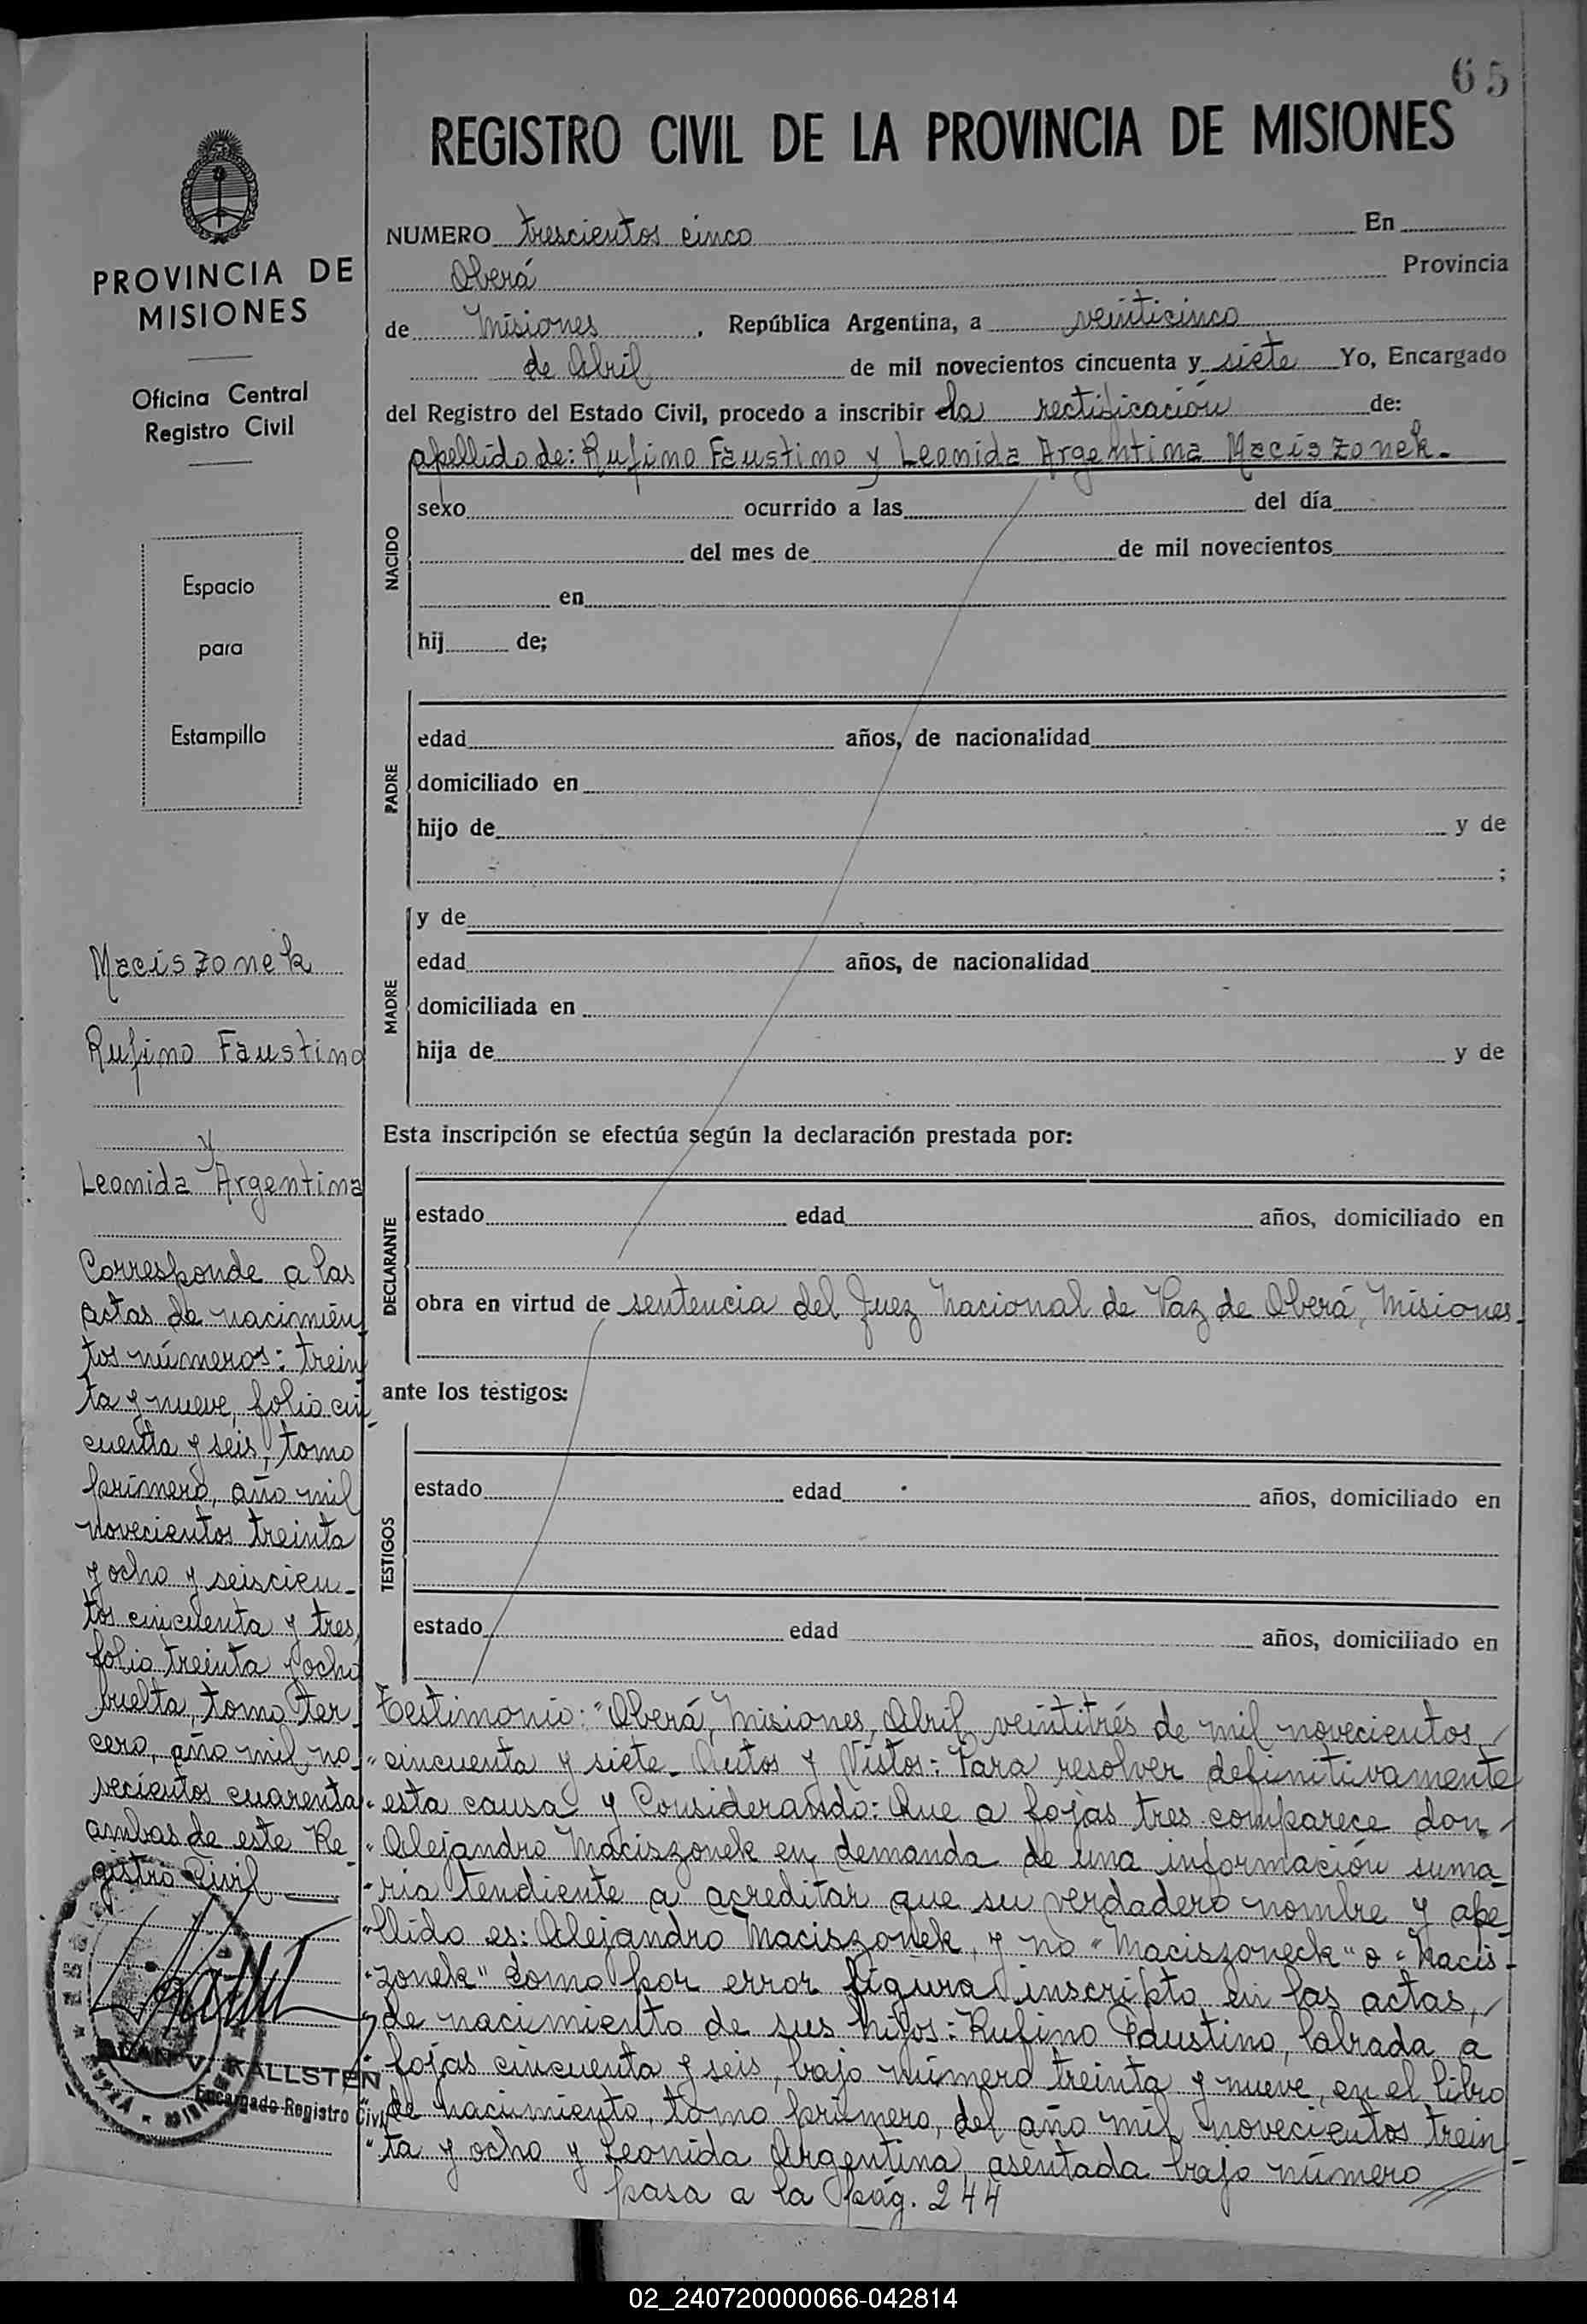 65
REGISTRO CIVIL DE LA PROVINCIA DE MISIONES
PROVINCIA DE
MISIONES
Oficina Central
Registro Civil
Espacio
para
Estampilla
Maciszonek
Rufino Faustino
y
Leonida Argentina
Corresponde a las
actas de nacimien
tos números: trein
ta y nueve, folio cin
cuenta y seis, tomo
primero, año mil
novecientos treinta
y ocho y seiscien-
tos cincuenta y tres,
folio treinta y ocho
vuelta, tomo ter-
cero, año mil no-
vecientos cuarenta
ambas de este Re-
gistro Civil
KALLSTEN
Encargado Registro Civil
NUMERO trescientos cinco En
Oberá Provincia
de Misiones, República Argentina, a veinticinco
de Abril de mil novecientos cincuenta y siete Yo, Encargado
del Registro del Estado Civil, procedo a inscribir la rectificación de:
apellido de: Rufino Faustino y Leonida Argentina Maciszonek.
NACIDO
sexo ocurrido a las del día
del mes de de mil novecientos
en
hij de;
PADRE
edad años, de nacionalidad
domiciliado en
hijo de y de
;
MADRE
y de
edad años, de nacionalidad
domiciliada en
hija de y de
Esta inscripción se efectúa según la declaración prestada por:
DECLARANTE
estado edad años, domiciliado en
obra en virtud de sentencia del Juez Nacional de Paz de Oberá, Misiones.
ante los testigos:
TESTIGOS
estado edad años, domiciliado en
estado edad años, domiciliado en
Testimonio: "Oberá, Misiones, Abril veintitrés de mil novecientos
"cincuenta y siete. Autos y Vistos: Para resolver definitivamente
"esta causa y Considerando: Que a fojas tres comparece don
"Alejandro Maciszonek en demanda de una información suma
"ria tendiente a acreditar que su verdadero nombre y ape
"llido es: Alejandro Maciszonek, y no "Maciszoneck" o "Nacis-
"zonek" como por error figura inscripto en las actas,
"de nacimiento de sus hijos: Rufino Faustino, labrada a
"fojas cincuenta y seis, bajo número treinta y nueve, en el libro
"de nacimiento, tomo primero, del año mil novecientos trein-
"ta y ocho y Leonida Argentina, asentada bajo número
pasa a la pág. 244
02_240720000066-042814